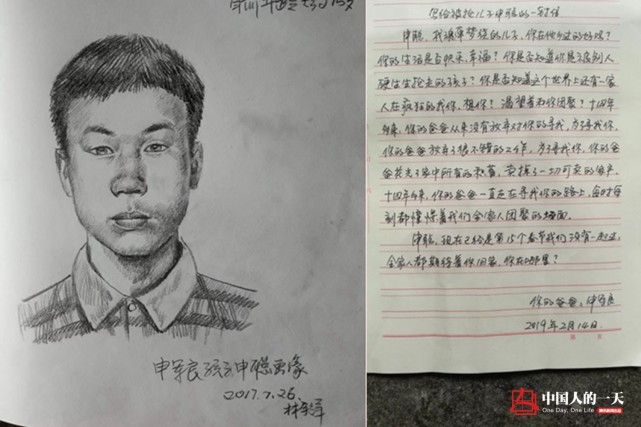 申军良孩子申聪画像
2017.7.26.
林宇辉
写给被抢儿子申聪的一封信
申聪,我魂牵梦绕的儿子,你在他乡过的好吗?
你的生活是否快乐、幸福?你是否知道你是被别人
硬生生抢走的孩子?你是否知道这个世界上还有一家
人在疯狂的找你、想你?渴望着和你团聚?十四年
来,你的爸爸从来没有放弃对你的寻找,为了寻找你,
你的爸爸放弃了很不错的工作,为了寻找你,你的爸
爸花光了家中所有的积蓄,卖掉了一切可卖的家产,
十四年来,你的爸爸一直走在寻找你的路上,每时每
刻都憧憬着我们全家人团聚的场面。
申聪,现在已经是第15个春节我们没有一起过,
全家人都期待着你回家,你在哪里?
你的爸爸:申军良
2019年2月14日.
中国人的一天
One Day, One Life